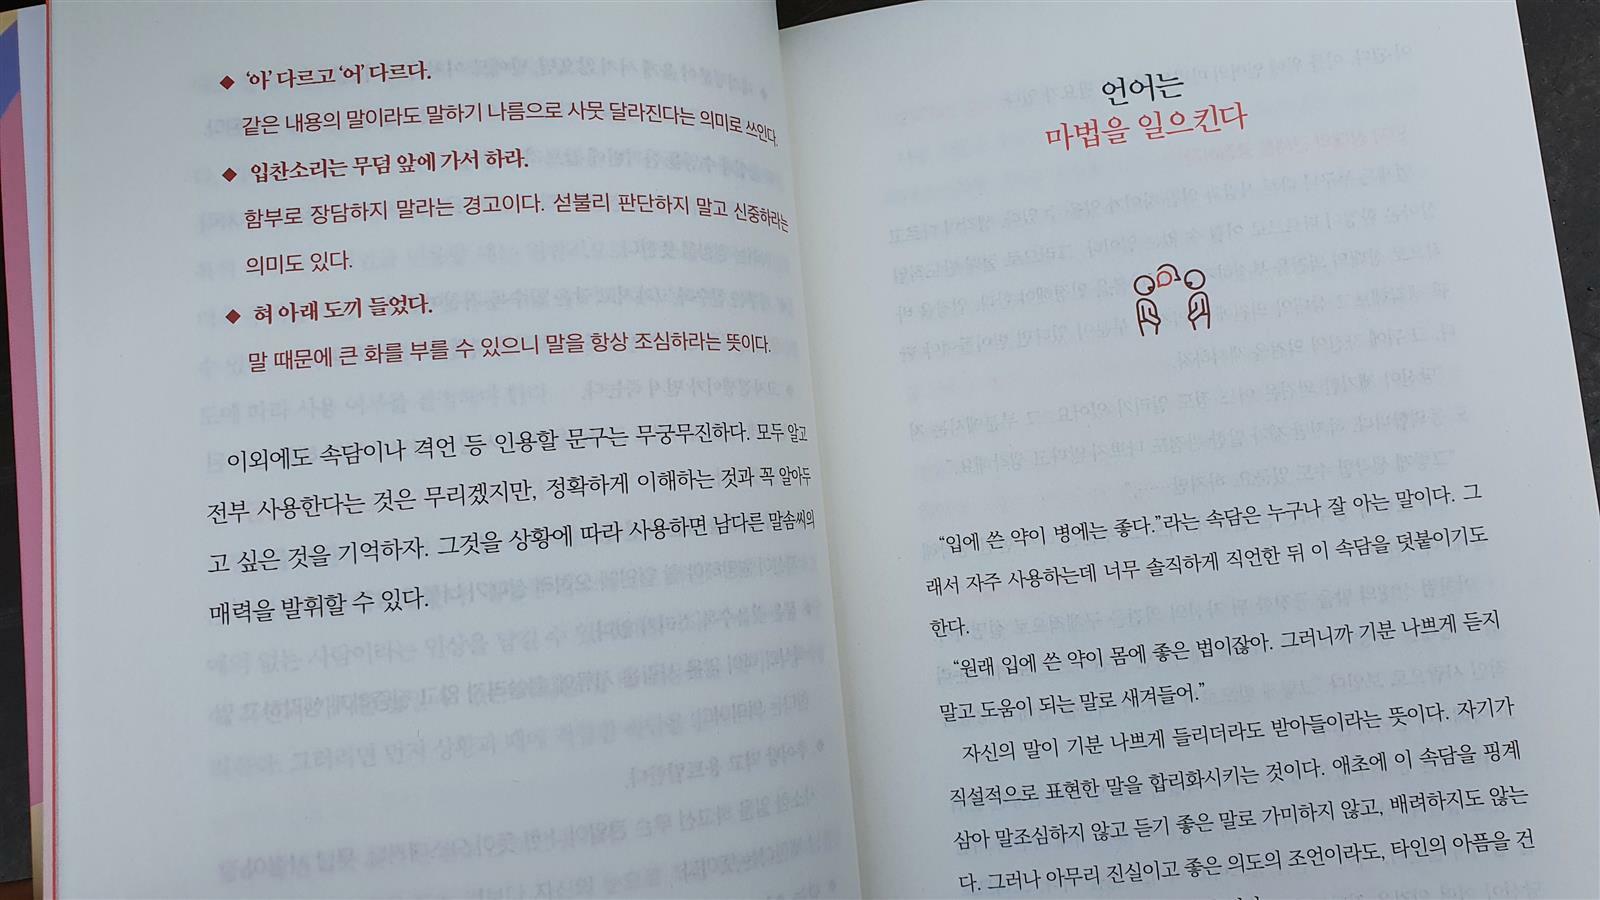 ◆ ‘아’ 다르고 ‘어’ 다르다.
같은 내용의 말이라도 말하기 나름으로 사뭇 달라진다는 의미로 쓰인다.
◆ 입찬소리는 무덤 앞에 가서 하라.
함부로 장담하지 말라는 경고이다. 섣불리 판단하지 말고 신중하라는
의미도 있다.
◆ 혀 아래 도끼 들었다.
말 때문에 큰 화를 부를 수 있으니 말을 항상 조심하라는 뜻이다.
이외에도 속담이나 격언 등 인용할 문구는 무궁무진하다. 모두 알고
전부 사용한다는 것은 무리겠지만, 정확하게 이해하는 것과 꼭 알아두
고 싶은 것을 기억하자. 그것을 상황에 따라 사용하면 남다른 말솜씨의
매력을 발휘할 수 있다.
언어는
마법을 일으킨다
“입에 쓴 약이 병에는 좋다.”라는 속담은 누구나 잘 아는 말이다. 그
래서 자주 사용하는데 너무 솔직하게 직언한 뒤 이 속담을 덧붙이기도
한다.
“원래 입에 쓴 약이 몸에 좋은 법이잖아. 그러니까 기분 나쁘게 듣지
말고 도움이 되는 말로 새겨들어.”
자신의 말이 기분 나쁘게 들리더라도 받아들이라는 뜻이다. 자기가
직설적으로 표현한 말을 합리화시키는 것이다. 애초에 이 속담을 핑계
삼아 말조심하지 않고 듣기 좋은 말로 가미하지 않고, 배려하지도 않는
다. 그러나 아무리 진실이고 좋은 의도의 조언이라도, 타인의 아픔을 건